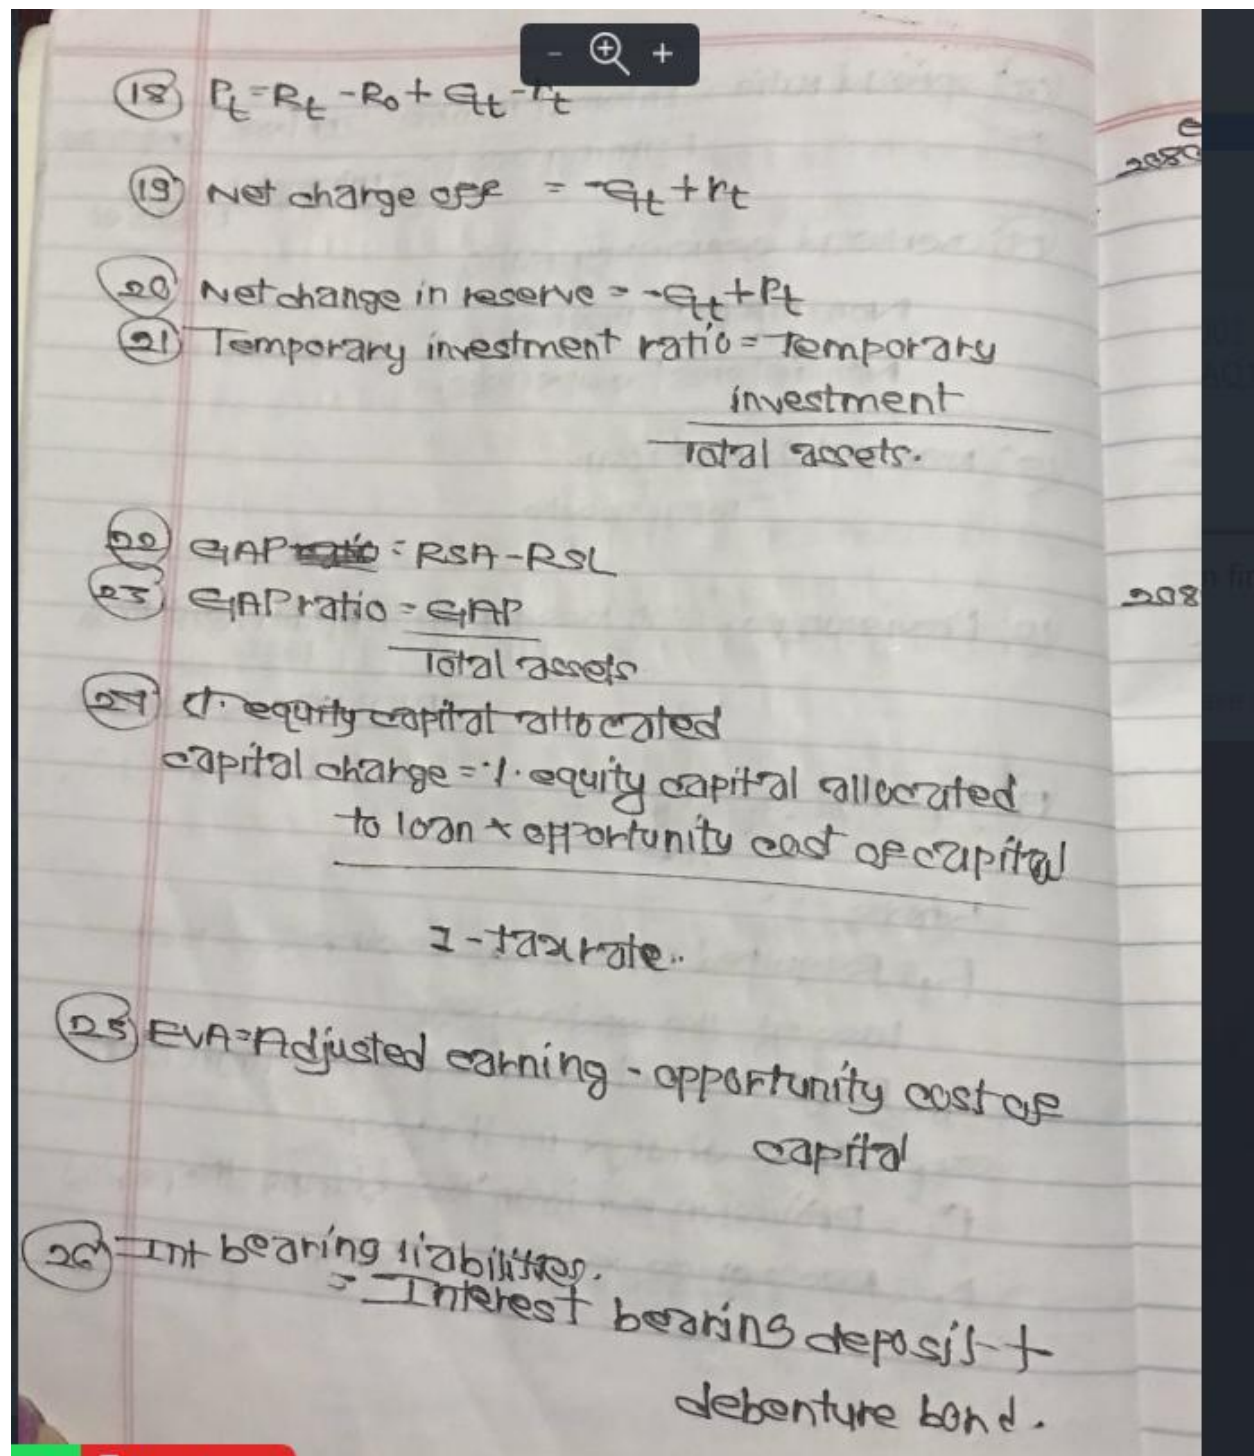 18 Pt = Rt - Ro + Gt - rt
19 Net charge off = -Gt + rt
20 Net change in reserve = -Gt + Pt
21 Temporary investment ratio = Temporary
investment
Total assets.
22 GAP = RSA - RSL
23 GAP ratio = GAP
Total assets
24 equity capital allocated
capital charge = % equity capital allocated
to loan * opportunity cost of capital
1 - tax rate..
25 EVA = Adjusted earning - opportunity cost of
capital
26 Int bearing liabilities.
= Interest bearing deposit +
debenture bond.
2080
208